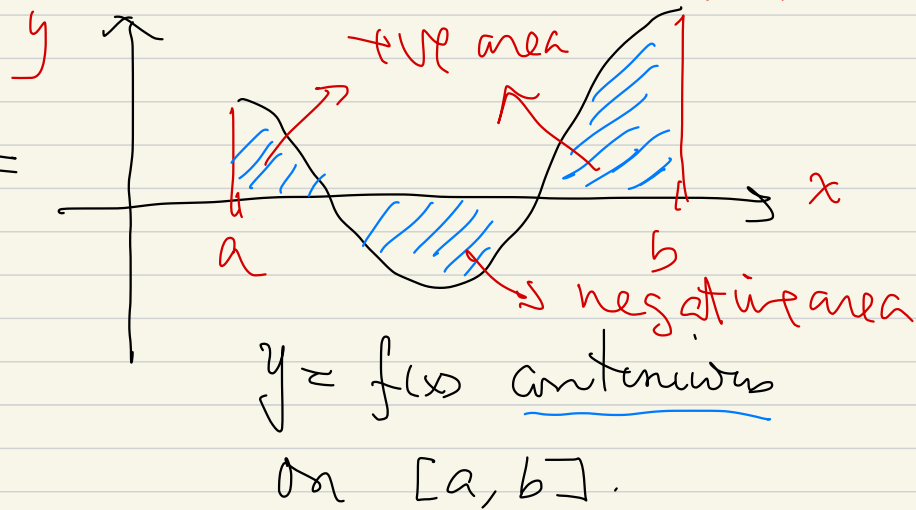 y
+ve area
=
x
a
b
negative area
y = f(x) continuous
on [a, b].